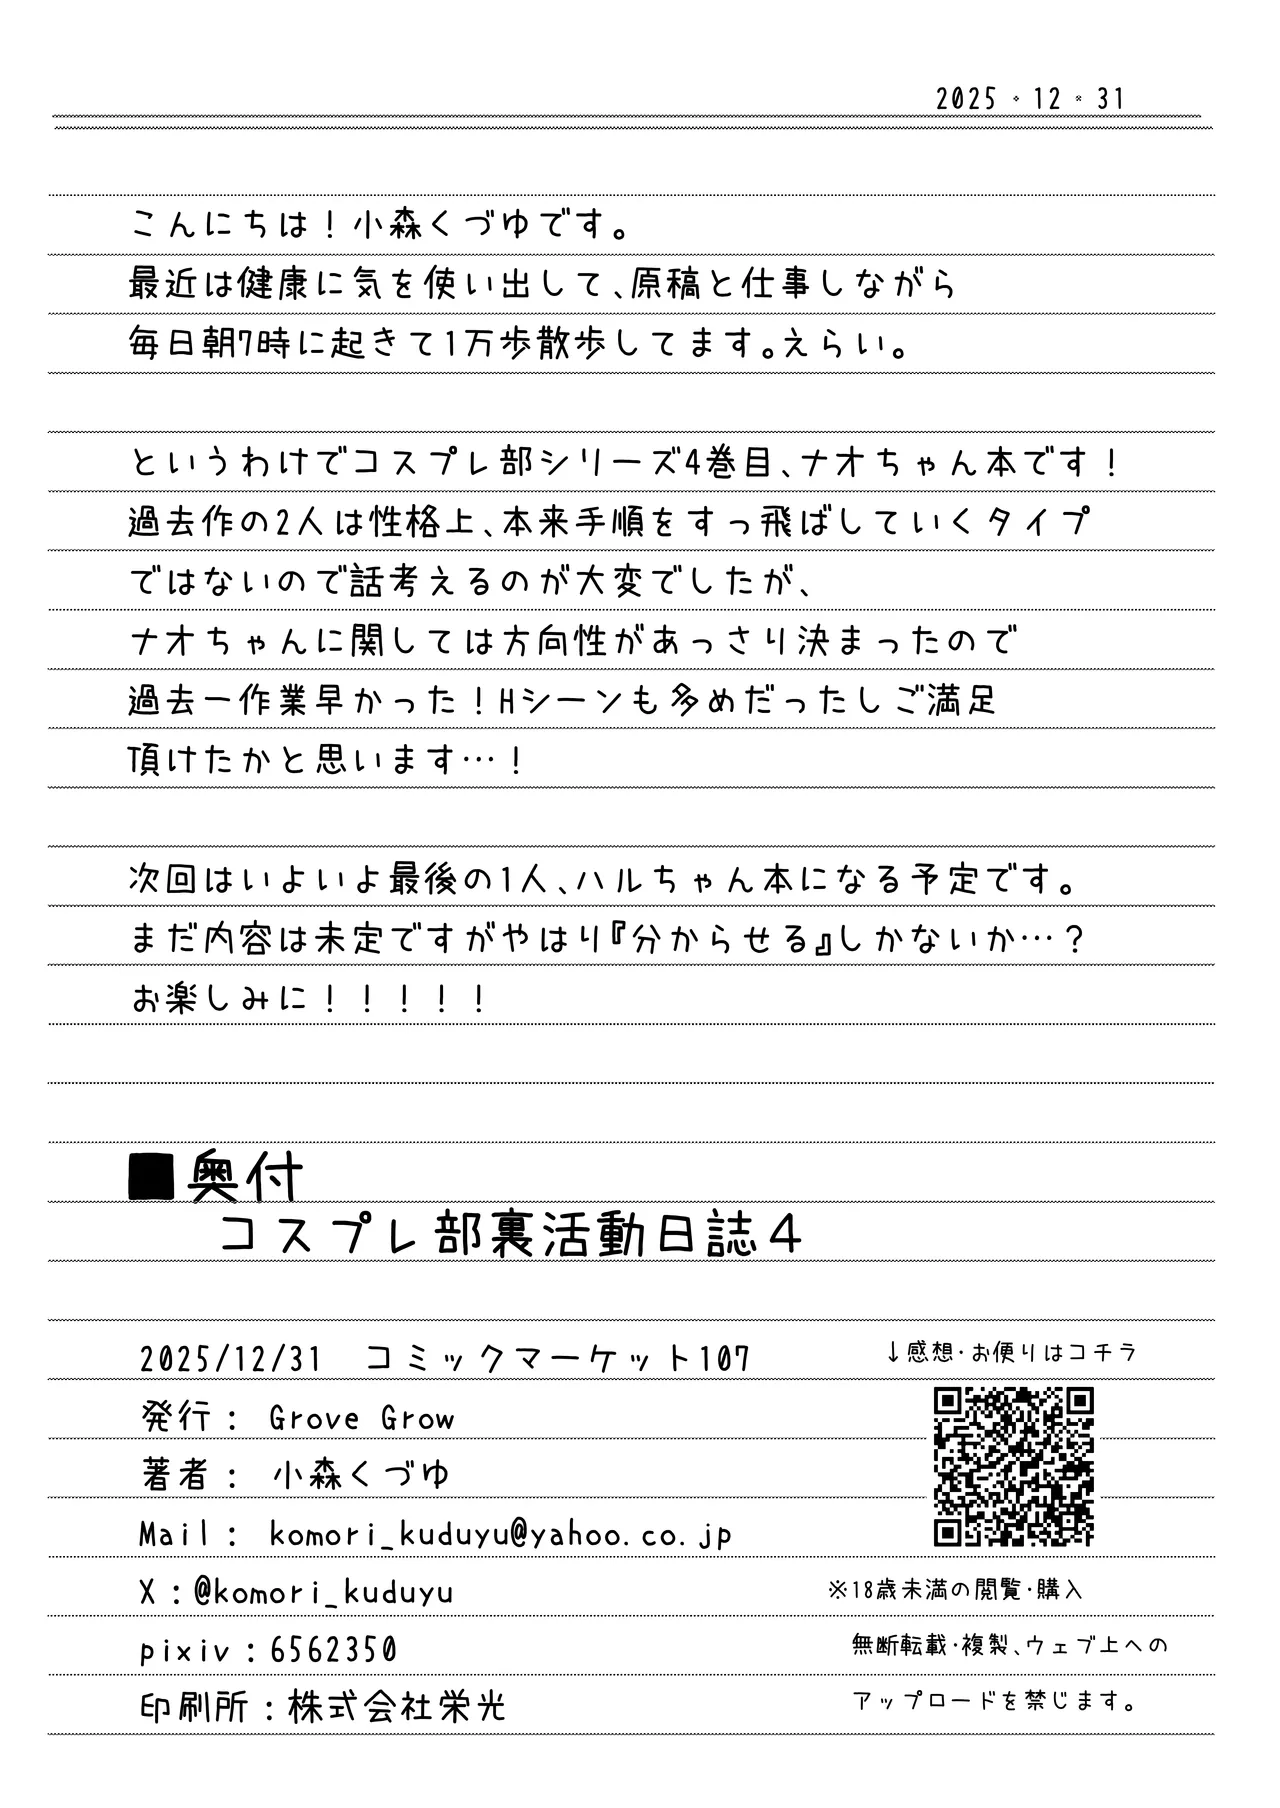 2025・12・31
こんにちは！小森くづゆです。
最近は健康に気を使い出して、原稿と仕事しながら
毎日朝7時に起きて1万歩散歩してます。えらい。
というわけでコスプレ部シリーズ4巻目、ナオちゃん本です！
過去作の2人は性格上、本来手順をすっ飛ばしていくタイプ
ではないので話考えるのが大変でしたが、
ナオちゃんに関しては方向性があっさり決まったので
過去一作業早かった！Hシーンも多めだったしご満足
頂けたかと思います…！
次回はいよいよ最後の1人、ハルちゃん本になる予定です。
まだ内容は未定ですがやはり『分からせる』しかないか…？
お楽しみに！！！！！
■奥付
コスプレ部裏活動日誌4
2025/12/31　コミックマーケット107
発行：　Grove Grow
著者：　小森くづゆ
Mail：　komori_kuduyu@yahoo.co.jp
X：@komori_kuduyu
pixiv：6562350
印刷所：株式会社栄光
↓感想・お便りはコチラ
※18歳未満の閲覧・購入
無断転載・複製、ウェブ上への
アップロードを禁じます。